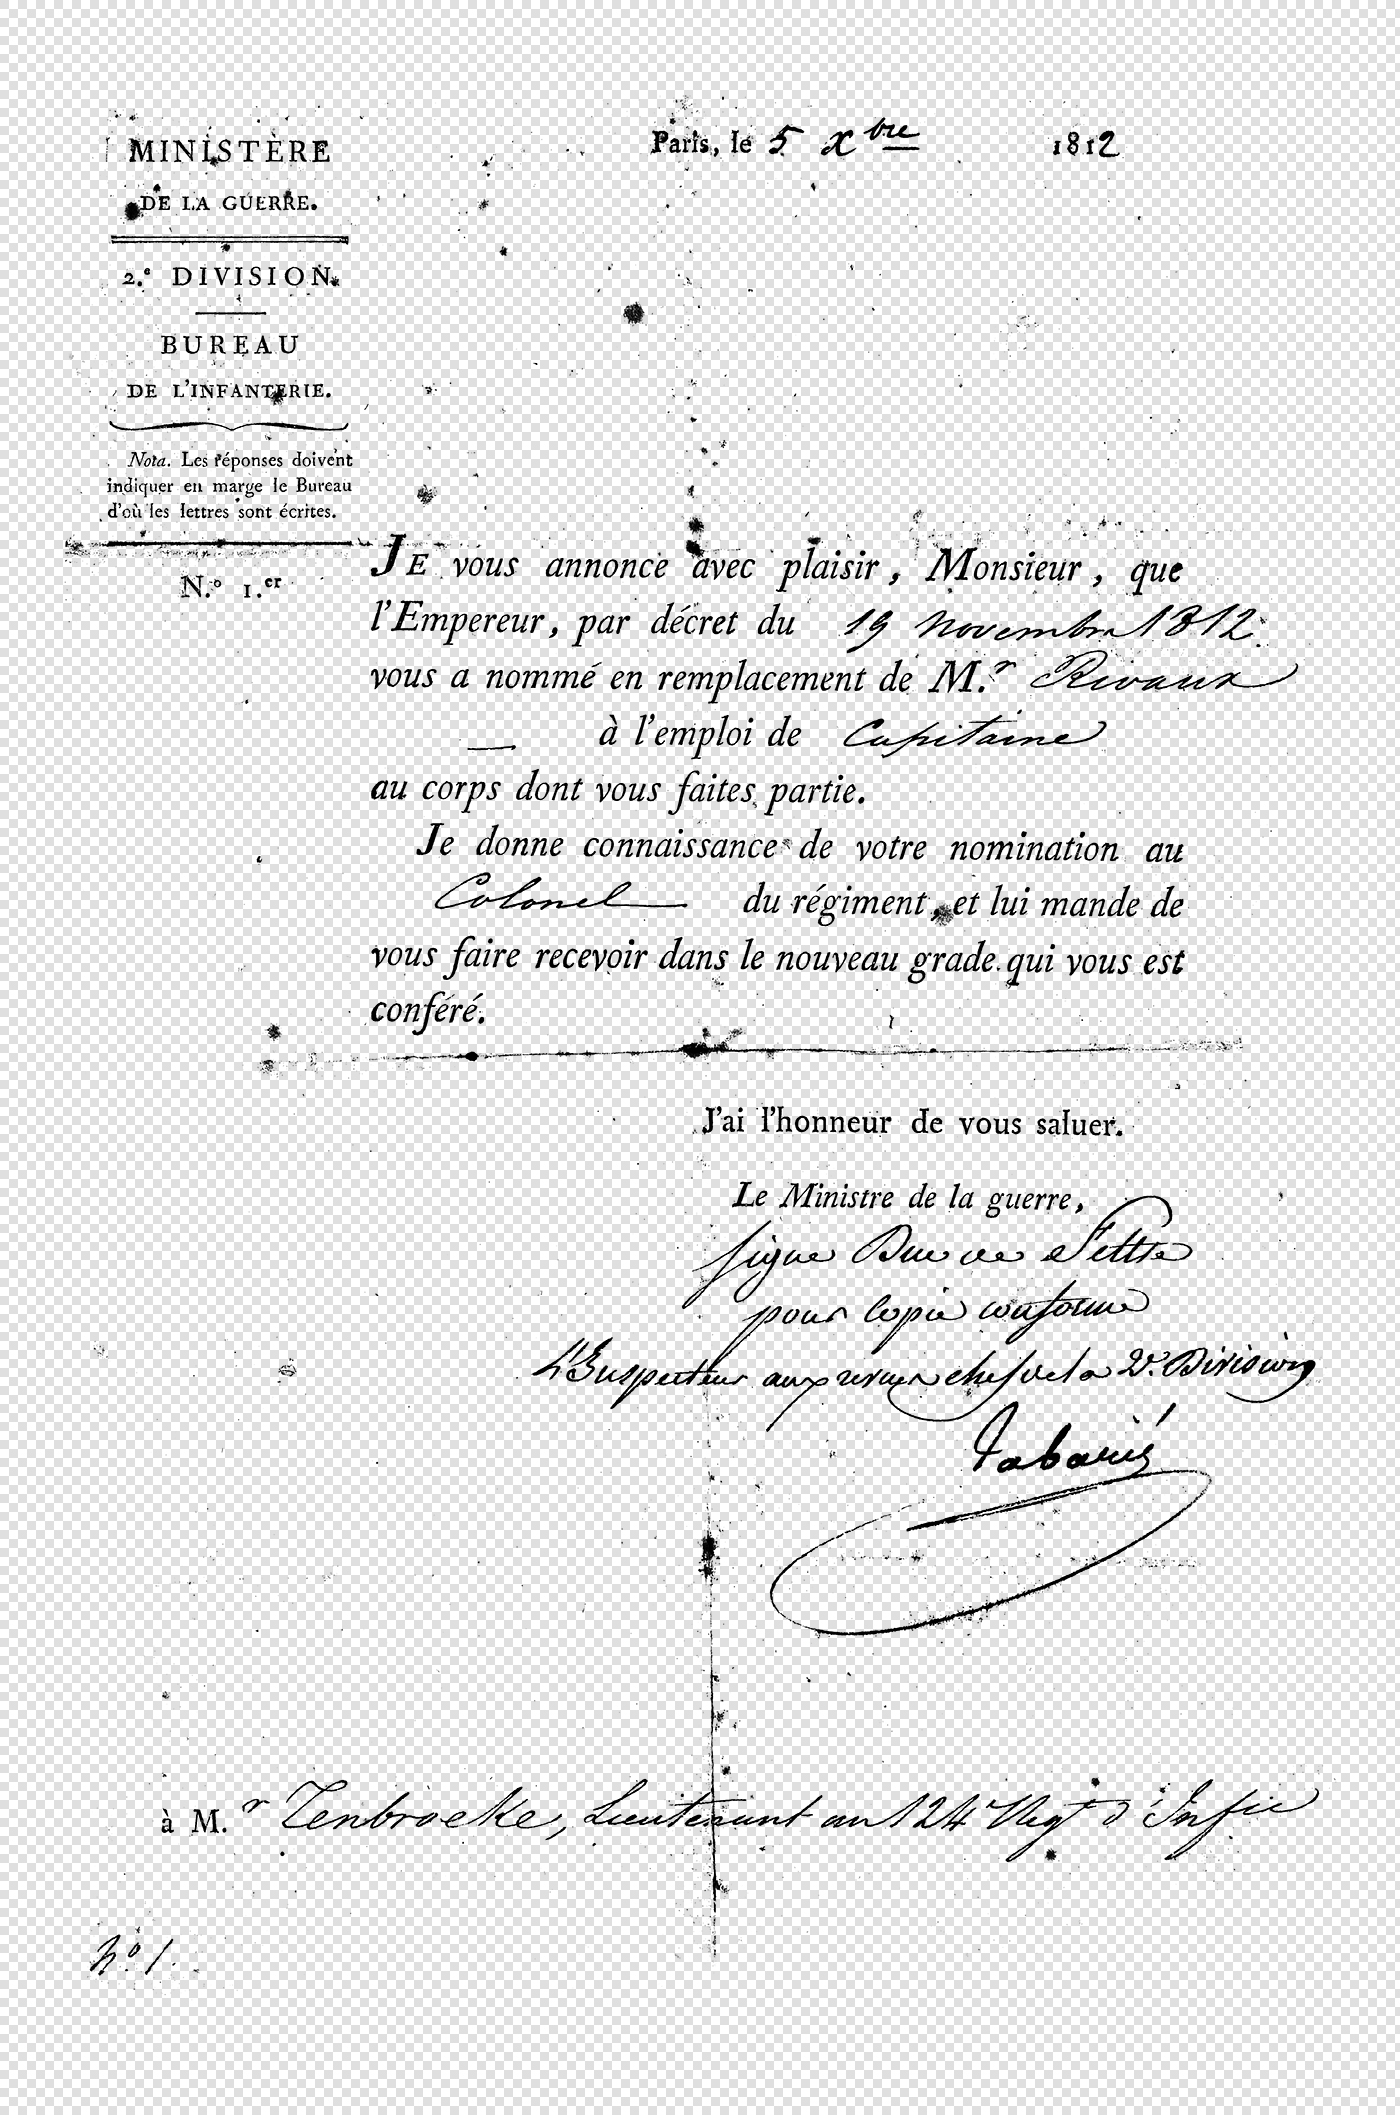 MINISTÈRE
DE LA GUERRE.
2.e DIVISION.
BUREAU
DE L'INFANTERIE.
Nota. Les réponses doivent
indiquer en marge le Bureau
d'où les lettres sont écrites.
N.o 1.er
Paris, le 5 Xbre 1812
JE vous annonce avec plaisir, Monsieur, que
l'Empereur, par décret du 19 Novembre 1812.
vous a nommé en remplacement de M.r Rivaux
— à l'emploi de Capitaine
au corps dont vous faites partie.
Je donne connaissance de votre nomination au
Colonel du régiment, et lui mande de
vous faire recevoir dans le nouveau grade qui vous est
conféré.
J'ai l'honneur de vous saluer.
Le Ministre de la guerre,
signé Duc de Feltre
pour Copie conforme
L'Inspecteur aux revues chef de la 2e. Division
Tabarié
à M.r Tenbroeke, Lieutenant au 124e Regt d'Infie
No. 1.